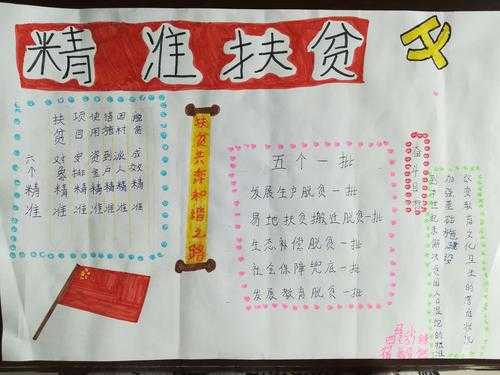 精准扶贫
六个精准
扶贫对象精准
项目安排精准
使用资金精准
措施到户精准
因村派人精准
脱贫成效精准
扶贫共奔和谐之路
五个一批
发展生产脱贫一批
易地扶贫搬迁脱贫一批
生态补偿脱贫一批
社会保障兜底一批
发展教育脱贫一批
奋斗目标
世纪末解决贫困人口温饱的标准
加强基础设施建设
改变教育文化卫生的落后状况